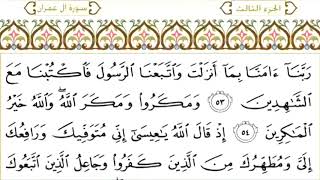 الجزء الثالث
سورة آل عمران
رَبَّنَآ ءَامَنَّا بِمَآ أَنزَلْتَ وَٱتَّبَعْنَا ٱلرَّسُولَ فَٱكْتُبْنَا مَعَ
ٱلشَّٰهِدِينَ ٥٣ وَمَكَرُوا۟ وَمَكَرَ ٱللَّهُ ۖ وَٱللَّهُ خَيْرُ
ٱلْمَٰكِرِينَ ٥٤ إِذْ قَالَ ٱللَّهُ يَٰعِيسَىٰٓ إِنِّى مُتَوَفِّيكَ وَرَافِعُكَ
إِلَىَّ وَمُطَهِّرُكَ مِنَ ٱلَّذِينَ كَفَرُوا۟ وَجَاعِلُ ٱلَّذِينَ ٱتَّبَعُوكَ